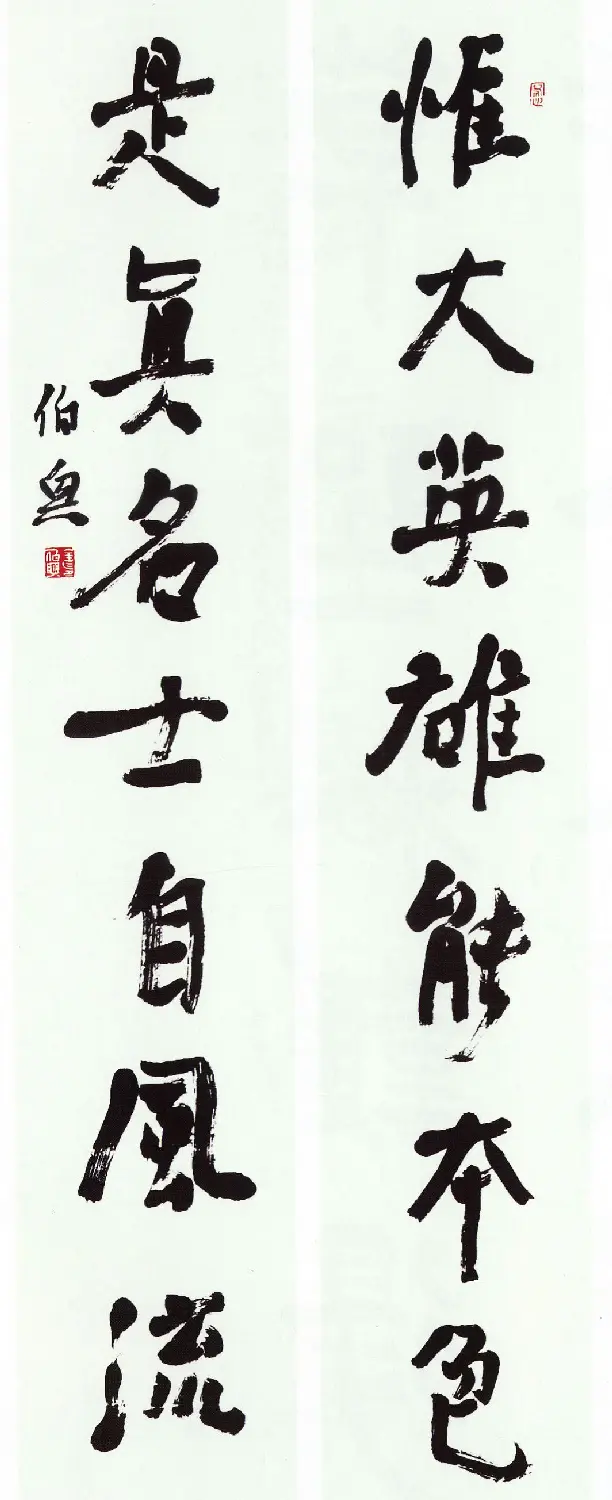 惟大英雄能本色
是真名士自風流
伯